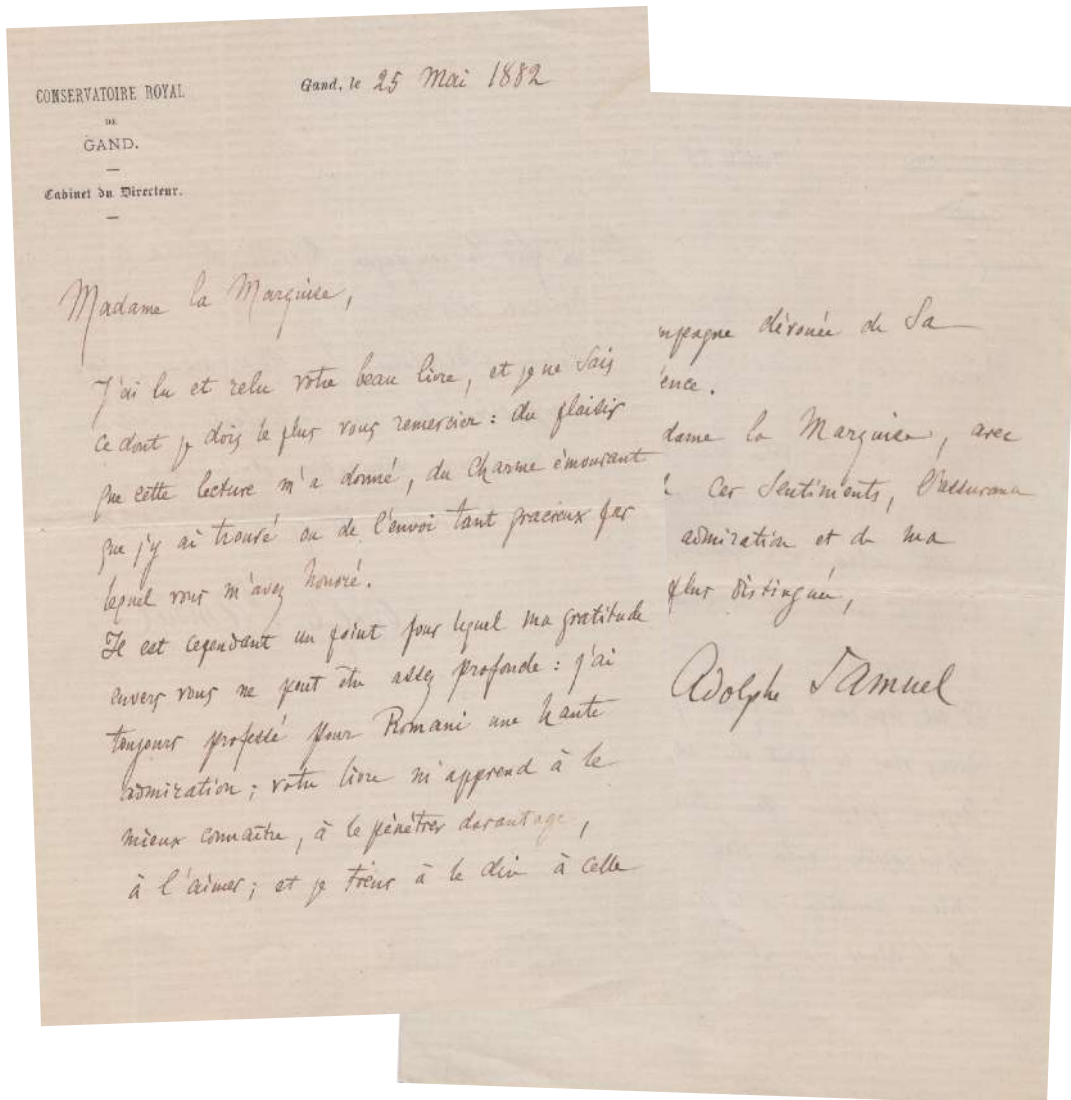 CONSERVATOIRE ROYAL
DE
GAND.
Cabinet du Directeur.
Gand, le 25 Mai 1882
Madame la Marquise,
J'ai lu et relu votre beau livre, et je ne sais
ce dont je dois le plus vous remercier : du plaisir
que cette lecture m'a donné, du charme émouvant
que j'y ai trouvé ou de l'envoi tant gracieux par
lequel vous m'avez honoré.
Il est cependant un point pour lequel ma gratitude
envers vous ne peut être assez profonde : j'ai
toujours professé pour Romani une haute
admiration ; votre livre m'apprend à le
mieux connaître, à le pénétrer davantage,
à l'aimer ; et je tiens à le dire à celle
mpagne dévouée de sa
ence.
dame la Marquise, avec
ces sentiments, l'assurance
admiration et de ma
plus distinguée,
Adolphe Samuel